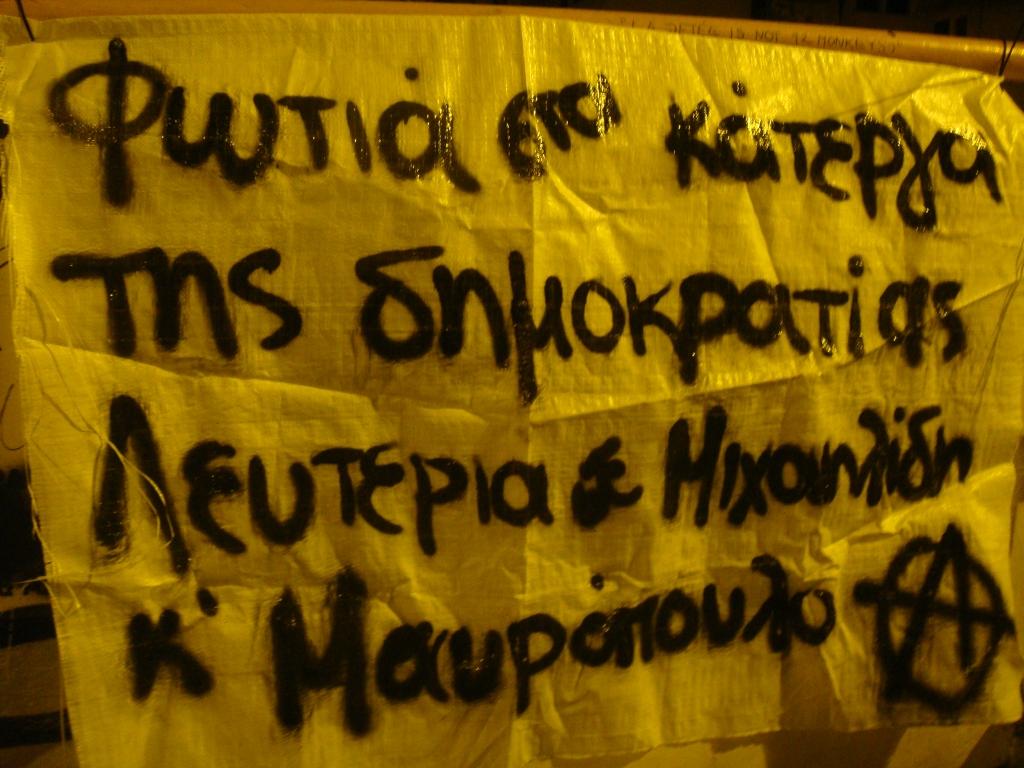 Φωτιά στα κάτεργα
της δημοκρατίας
Λευτεριά σε Μιχαηλίδη
κ' Μαυρόπουλο Ⓐ